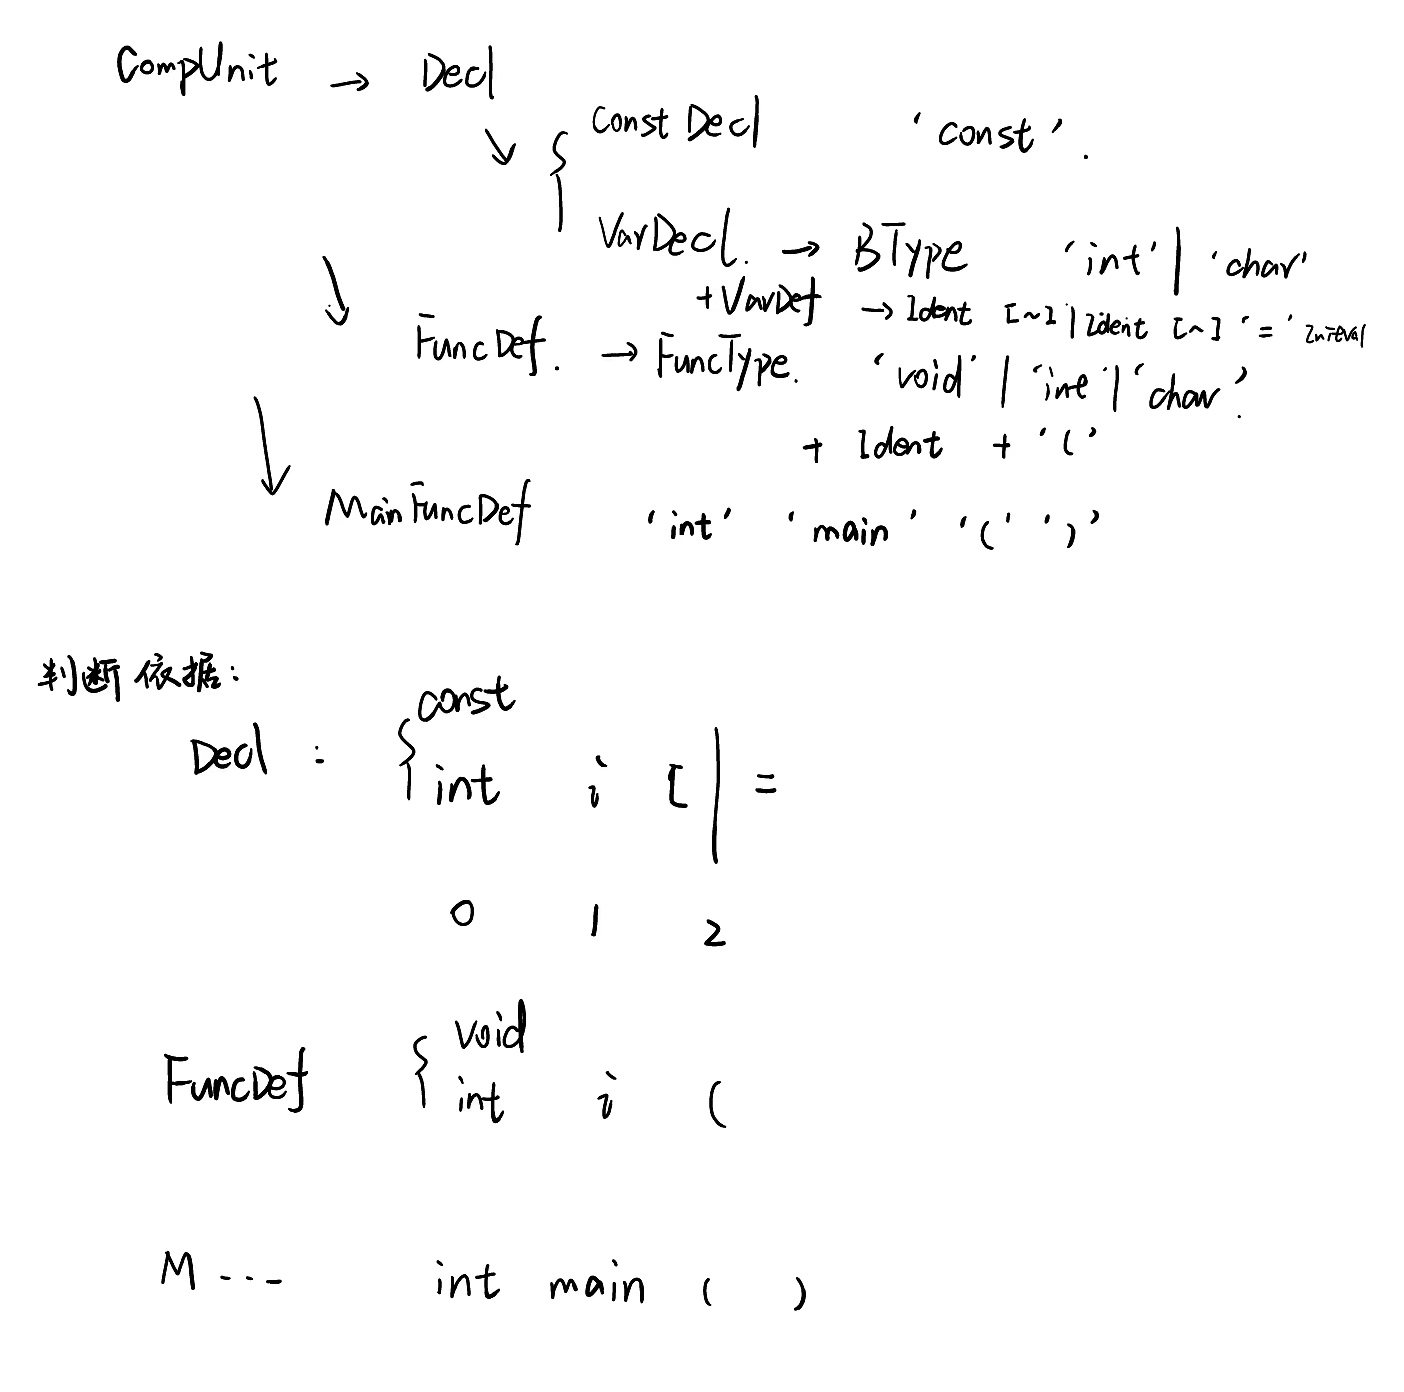 CompUnit → Decl
ConstDecl 'const'.
VarDecl. → BType 'int' | 'char'
+VarDef → Ident [~] | Ident [~] '=' InitVal
FuncDef. → FuncType. 'void' | 'int' | 'char'.
+ Ident + '('
MainFuncDef 'int' 'main' '(' ')'
判断依据:
const
Decl : { int i [ | =
0 1 2
void
FuncDef { int i (
M --- int main ( )